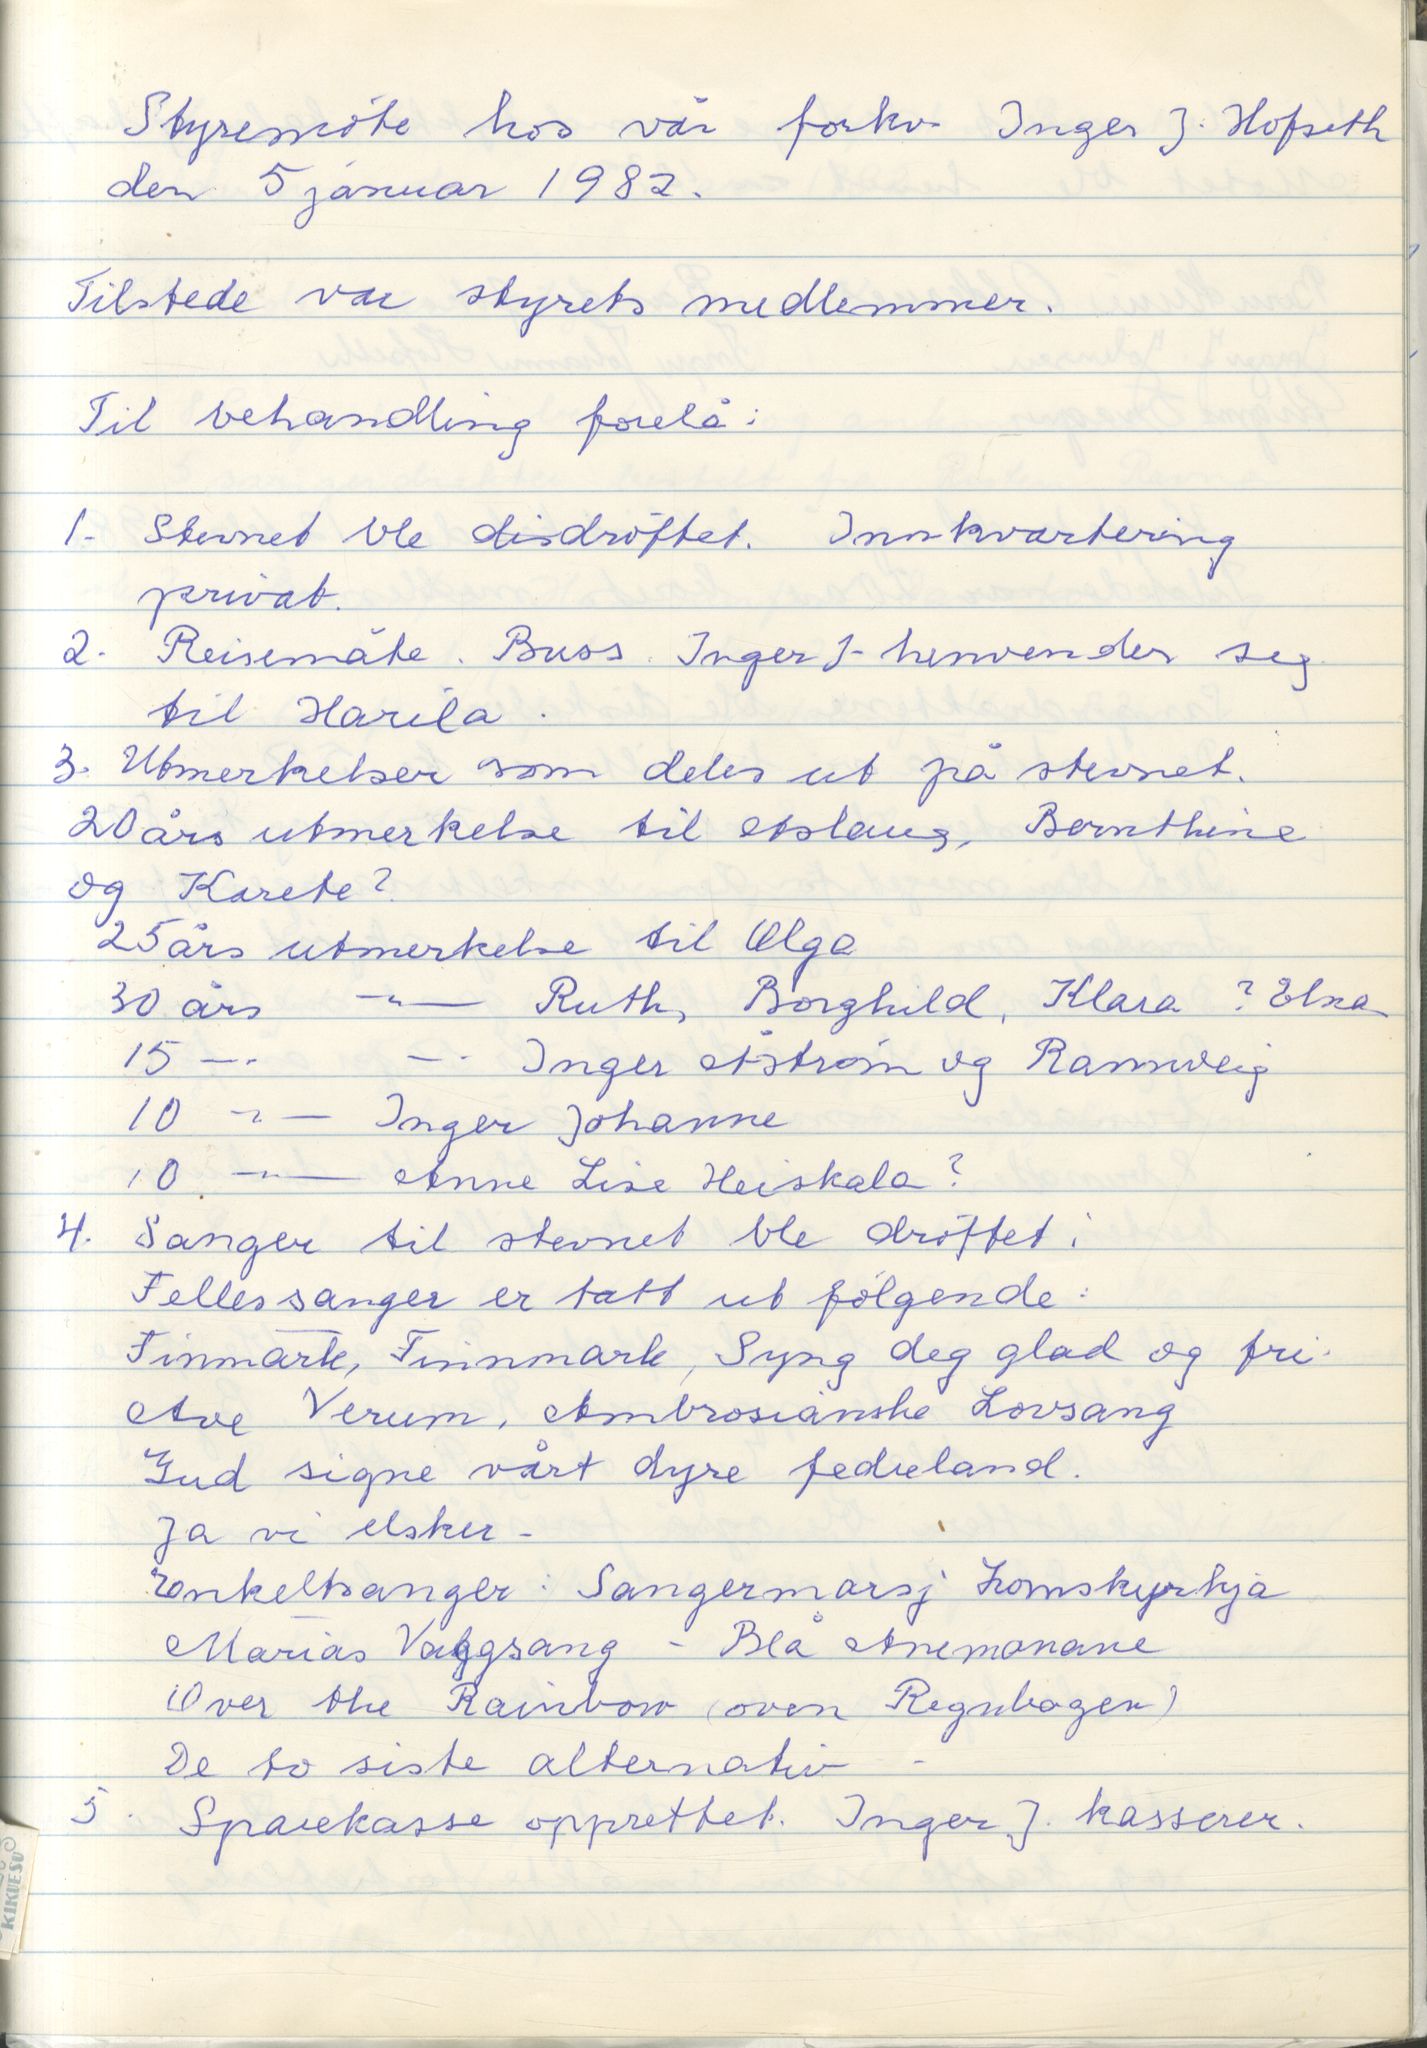 Styremöte hos vår forkv. Inger J. Hofseth
den 5 januar 1982.
Tilstede var styrets medlemmer.
Til behandling forelå:
1. Stevnet ble disdröftet. Innkvartering
privat.
2. Reisemåte. Buss. Inger J. henvender seg
til Harila.
3. Utmerkelser som deles ut på stevnet.
20 års utmerkelse til Aslaug, Bernthine
og Karete?
25 års utmerkelse til Olga
30 års —"— Ruth, Borghild, Klara ? Elna
15 —"— —"— Inger Aström og Rannveig
10 —"— Inger Johanne
10 —"— Anne Lise Heiskala?
4. Sanger til stevnet ble dröftet:
Fellessanger er tatt ut fölgende:
Finmark, Finnmark, Syng deg glad og fri.
Ave Verum, Ambrosianske Lovsang
Gud signe vårt dyre fedreland.
Ja vi elsker -
Enkeltsanger: Sangermarsj Lomskyrkja
Marias Vaggsang - Blå Anemonane
Over the Rainbow (over Regnbogen)
De to siste alternativ -
5. Sparekasse opprettet. Inger J. kasserer.
KIKUESU